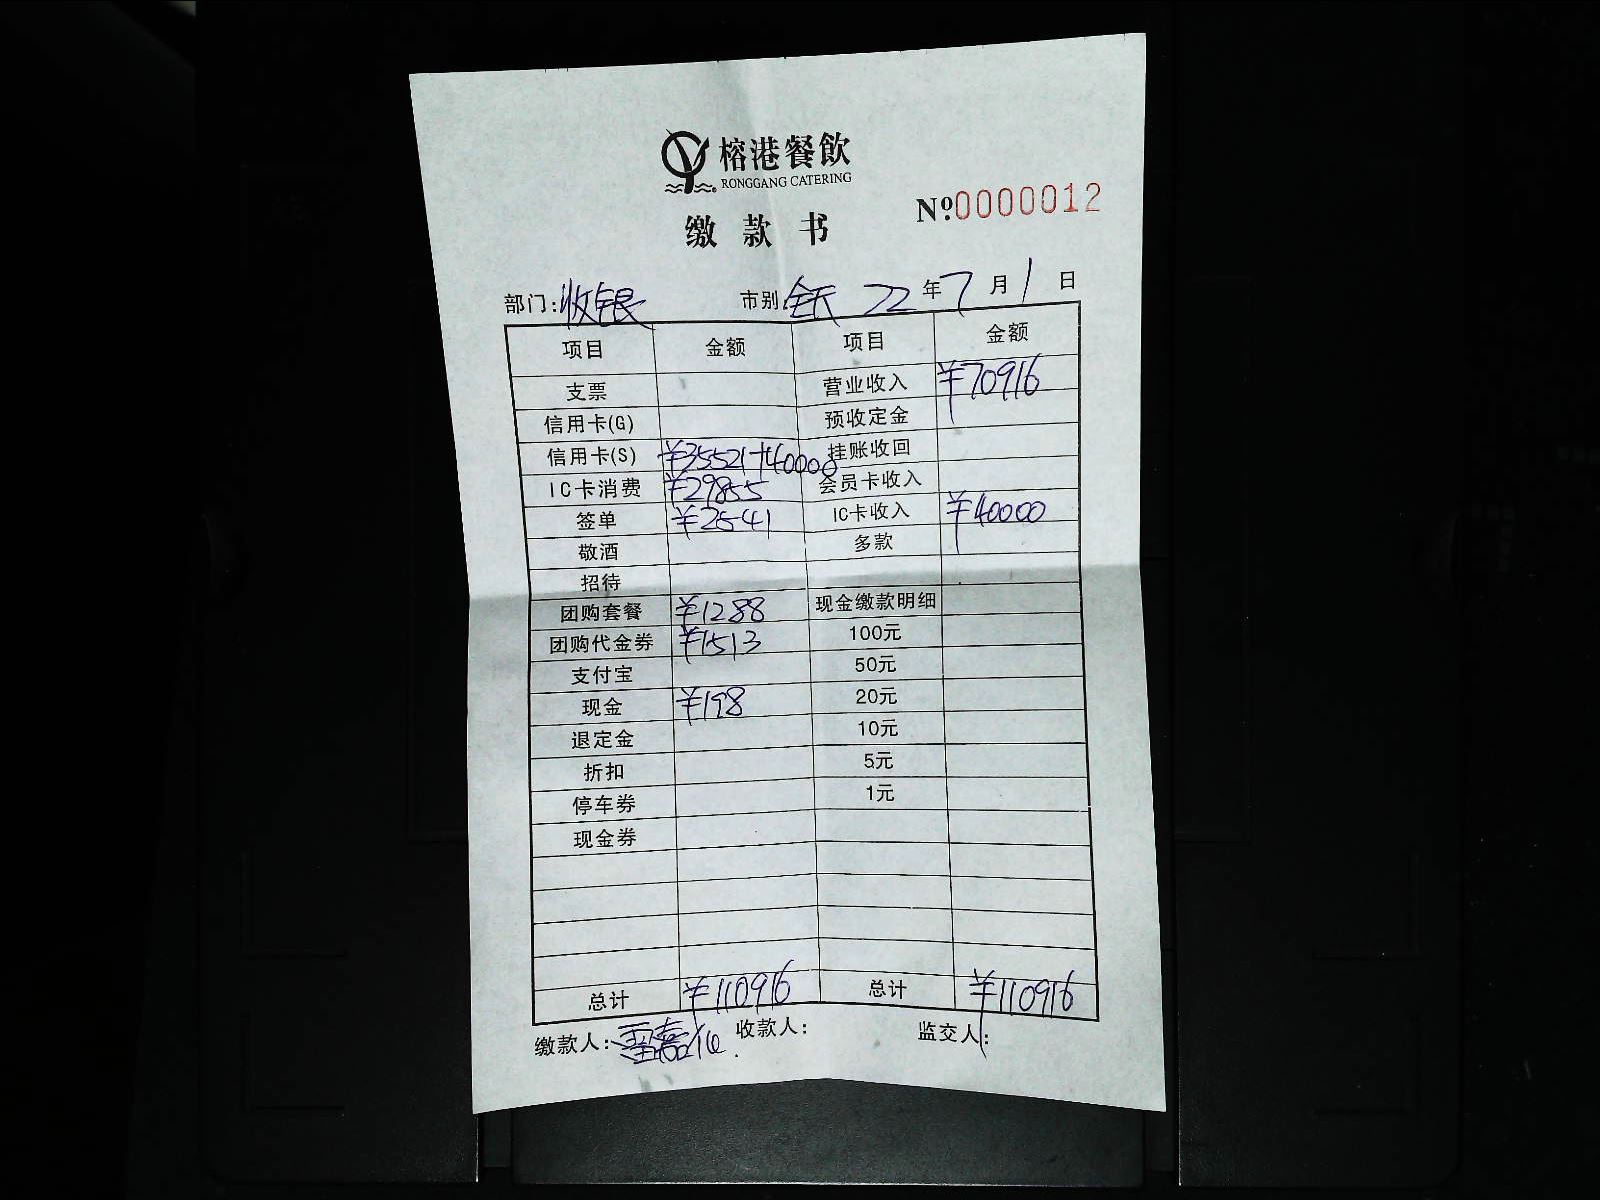 榕港餐飲
RONGGANG CATERING
缴款书
Nº 0000012
部门:收银 市别 全天 22年7月1日
项目 金额 项目 金额
支票 营业收入 ¥70916
信用卡(G) 预收定金
信用卡(S) ¥35521+40000 挂账收回
IC卡消费 ¥29855 会员卡收入
签单 ¥2541 IC卡收入 ¥40000
敬酒 多款
招待
团购套餐 ¥1288 现金缴款明细
团购代金券 ¥1513 100元
支付宝 50元
现金 ¥198 20元
退定金 10元
折扣 5元
停车券 1元
现金券
总计 ¥110916 总计 ¥110916
缴款人: 收款人: 监交人: